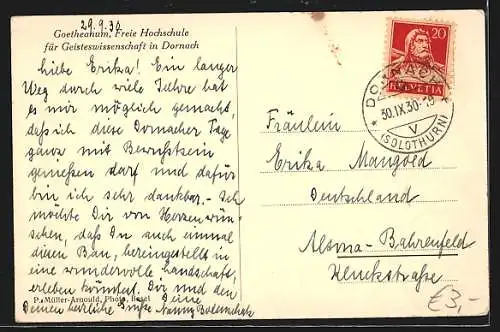 29.9.30
Goetheanum, Freie Hochschule
für Geisteswissenschaft in Dornach
Liebe Erika! Ein langer
Weg durch viele Jahre hat
es mir möglich gemacht,
daß ich diese Dornacher Tage
ganz mit Bewußtsein
genießen darf und dafür
bin ich sehr dankbar. - Ich
möchte Dir von Herzen wün-
schen, daß Du auch einmal
diesen Bau, hereingestellt in
eine wundervolle Landschaft,
erleben könntest. Dir und den
P. Müller-Arnould, Phot., Basel
Deinen herzliche Grüße Deine
20
HELVETIA
DORNACH
30.IX.30-19
V
(SOLOTHURN)
Fräulein
Erika Mangold
Deutschland
Altona-Bahrenfeld
€3,-